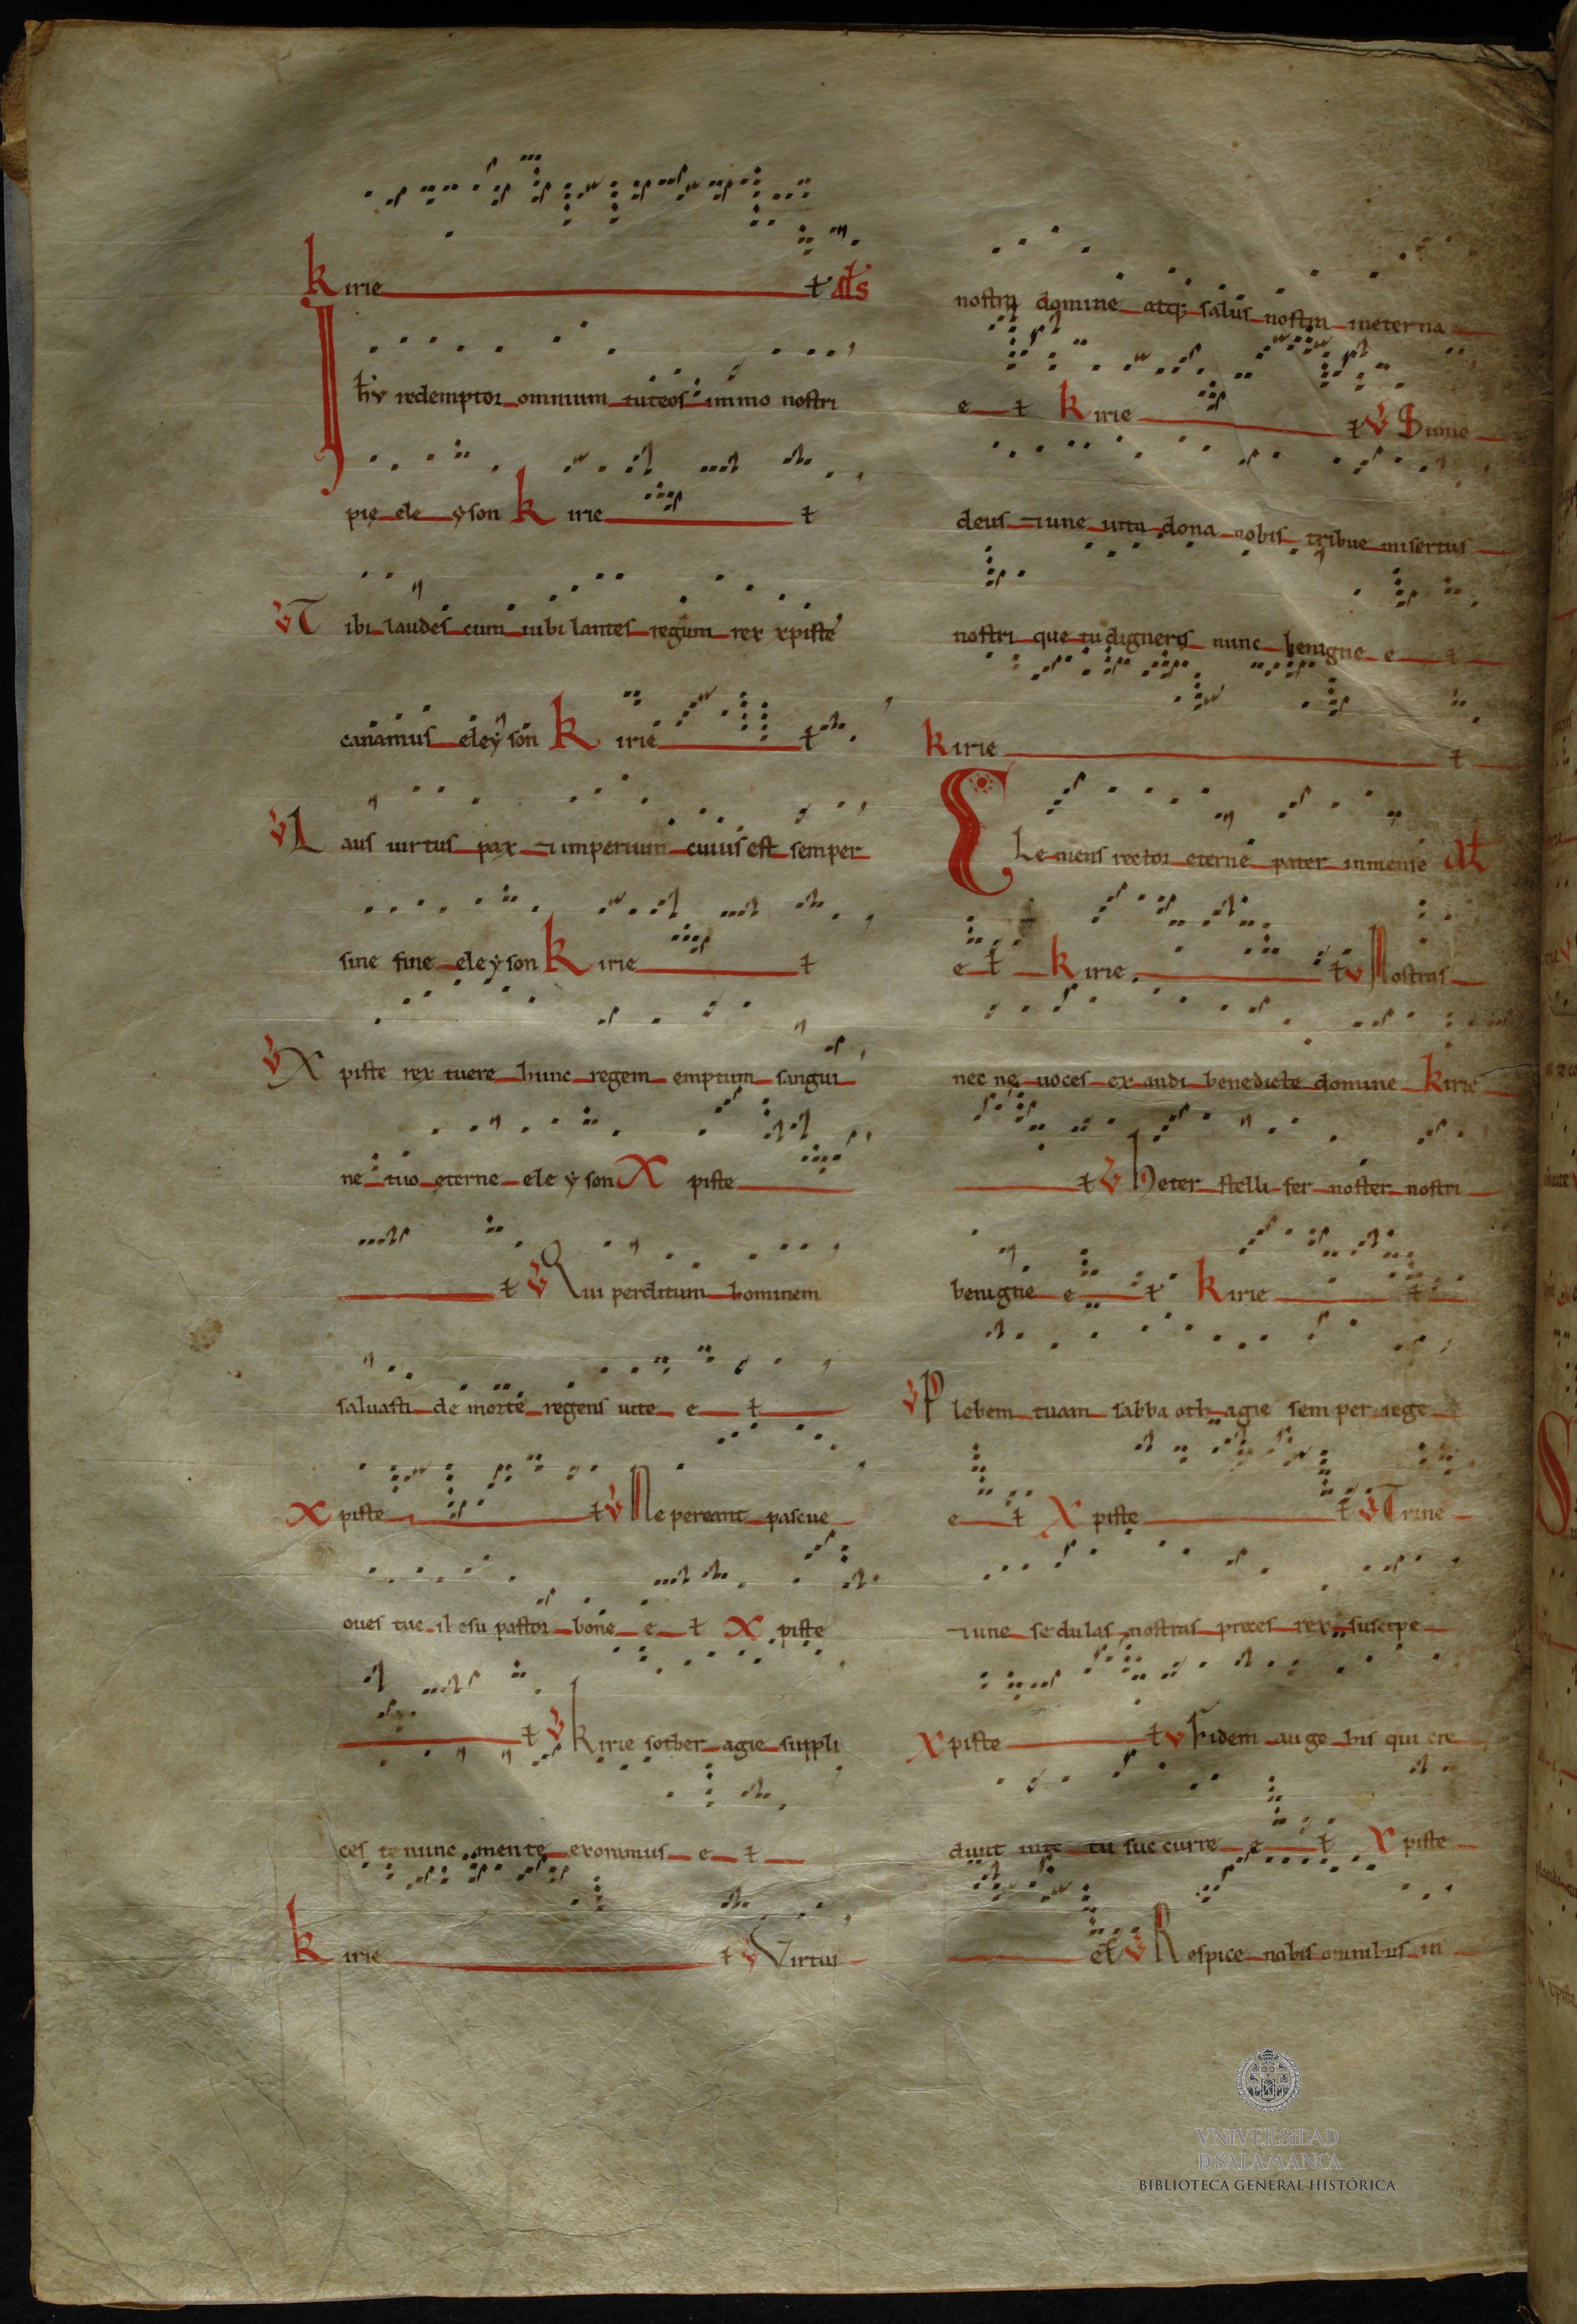 Kirie t als
Ihu redemptor omnium tuteos immo nostri
pie ele yson Kirie t
V Tibi laudes cum iubi lantes regum rex xpiste
canamus eley son Kirie t
V Laus uirtus pax & imperium cuius est semper
sine fine eleyson Kirie t
V Xpiste rex tuere hunc regem emptum sangui
ne tuo eterne ele yson Xpiste
t V Qui perditum hominem
saluasti de morte regens uite e t
Xpiste t V Ne pereant pascue
oues tue ihesu pastor bone e t Xpiste
t V Kirie sother agie suppli
ces te nunc mente exorimus e t
Kirie t V Virtui
nostra domine atq; salus nostra ineterna
e t Kirie t V Sume
deus &une uita dona nobis tribue misertus
nostri que tu digneris nunc benigne e t
Kirie t
Clemens rector eterne pater inmense al
e t Kirie t V Nostras
nec ne uoces ex audi benedicte domine Kirie
t V Heter stelli fer noster nostri
benigne e t Kirie t
V Plebem tuam sabba oth agie semper rege
e t Xpiste t V Trine
&une sedulas nostras preces rex suscipe
Xpiste t V Fidem auge his qui cre
dunt inte tu succurre e t Xpiste
et V Respice nobis omnibus in
VNiVERSiDAD
D SALAMANCA
BIBLIOTECA GENERAL HISTÓRICA